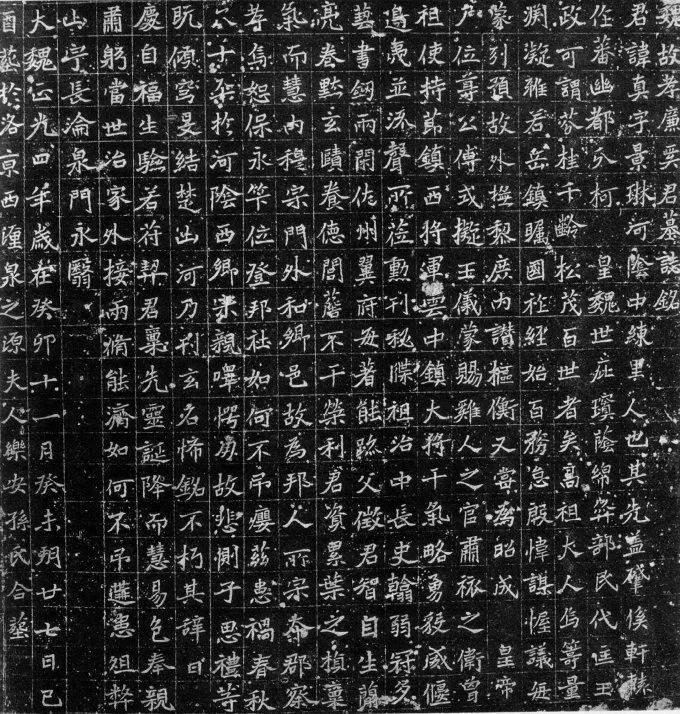 魏故孝廉奚君墓誌銘
君諱真字景琳河陰中練里人也其先蓋肇傒軒轅
作蕃幽都分柯皇魏世庇瓊蔭綿弈部民代匡王
政可謂芬桂千齡松茂百世者矣高祖大人烏籌量
渊凝雅若岳鎮矚國祚經始百務怠殷幃謀幄議每
蒙列預故外撫黎庶內讚樞衡又嘗為昭成皇帝
尸位尊公傅式擬王儀蒙賜雞人之官肅旅之衛曾
祖使持節鎮西將軍雲中鎮大將干氣略勇毅威偃
邊夷並流聲所莅勳刊秘牒祖治中長史翰弱冠多
藝書劒兩閑佐州翼府每著能跡父徵君智自生簡
亮卷默玄賾眷德閭簷不干榮利君資累葉之楨稟
氣而慧內穆宗門外和鄉邑故為邦人所宗本郡察
孝焉恕保永笇位登邦社如何不弔癭茲患禍春秋
六十卒於河陰西鄉宗親嘩愕為故悲惻子思禮等
阮傾穹旻結楚山河乃刊玄名悕銘不朽其辭曰
慶自福生驗若符契君稟先靈誕降而慧易色奉親
肅躬當世治家外接兩脩能濟如何不弔遘患殂弊
山宇長淪泉門永翳
大魏正光四年歲在癸卯十一月癸未朔廿七日己
酉葬於洛京西瀍泉之源夫人樂安孫氏合葬